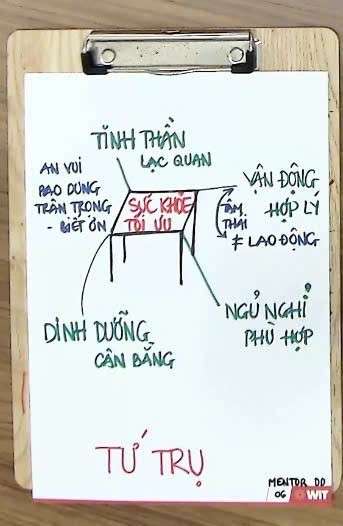 TINH THẦN
LẠC QUAN
AN VUI
BAO DUNG
TRÂN TRỌNG
- BIẾT ƠN
SỨC KHỎE
TỐI ƯU
VẬN ĐỘNG
HỢP LÝ
TÂM
THÁI
≠ LAO ĐỘNG
DINH DƯỠNG
CÂN BẰNG
NGỦ NGHỈ
PHÙ HỢP
TỨ TRỤ
MENTOR DD
06 WIT